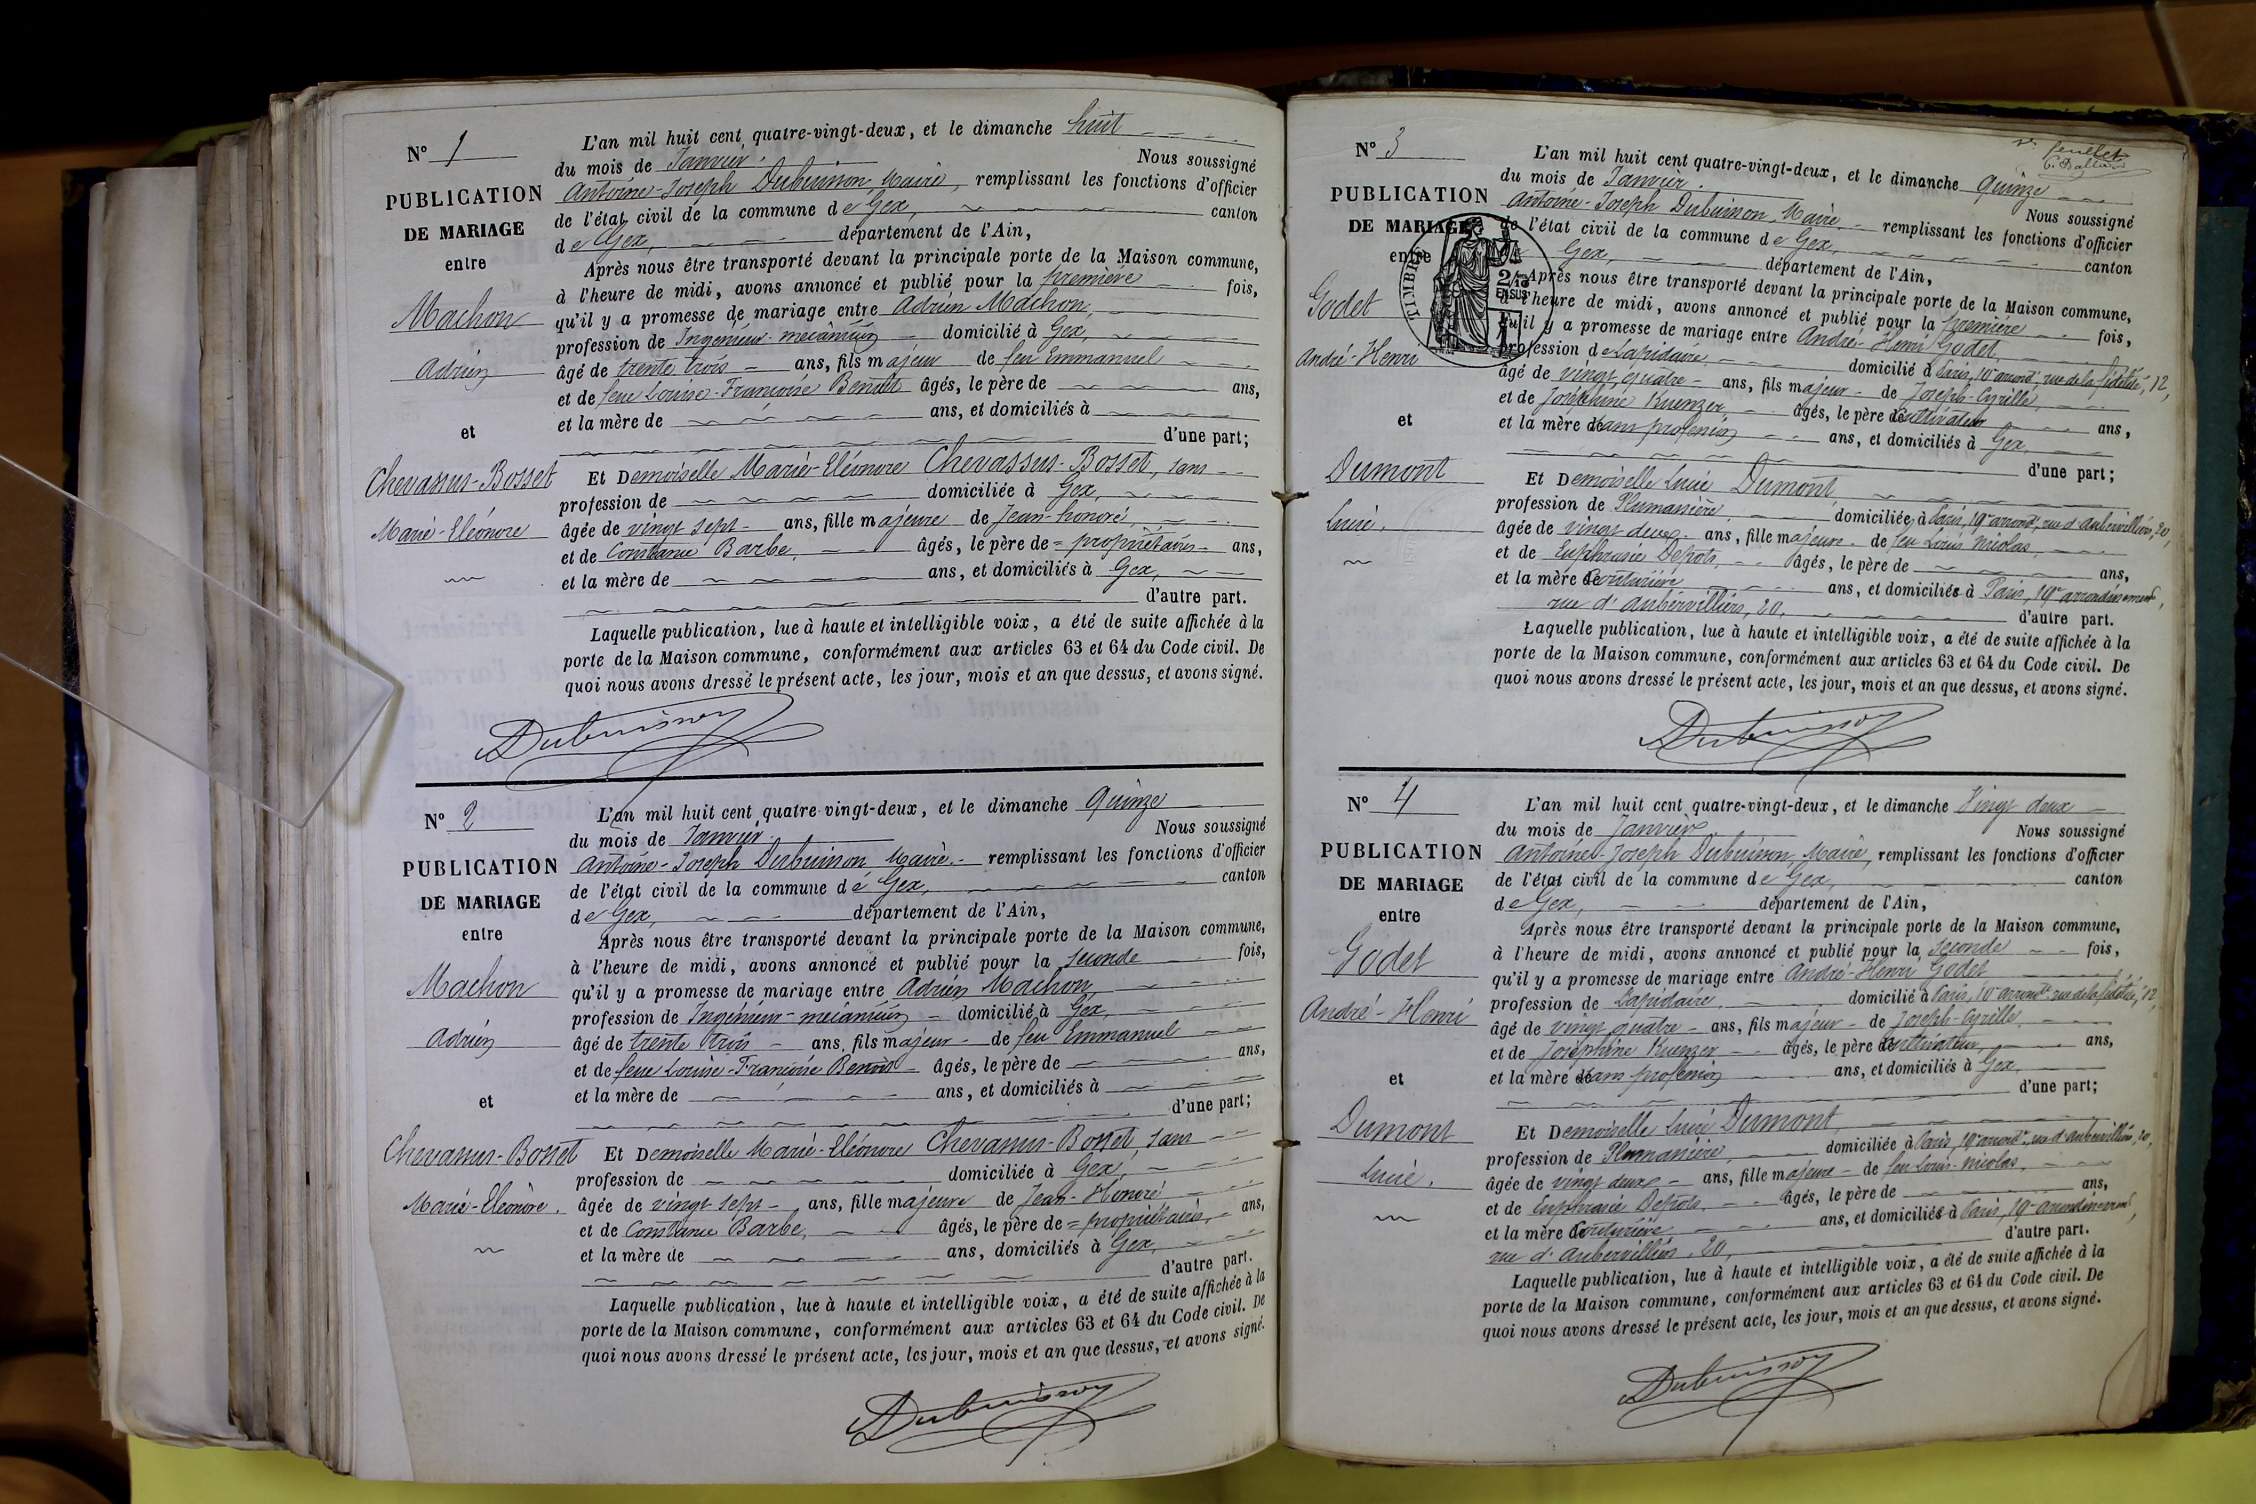 N° 1
PUBLICATION
DE MARIAGE
entre
Machon
Adrien
et
Chevassus-Bosset
Marie-Eléonore
L'an mil huit cent quatre-vingt-deux, et le dimanche huit
du mois de Janvier. Nous soussigné
Antoine-Joseph Dubuisson Maire, remplissant les fonctions d'officier
de l'état civil de la commune de Gex, canton
de Gex, département de l'Ain,
Après nous être transporté devant la principale porte de la Maison commune,
à l'heure de midi, avons annoncé et publié pour la première fois,
qu'il y a promesse de mariage entre Adrien Machon,
profession de Ingénieur-mécanicien domicilié à Gex,
âgé de trente trois ans, fils majeur de feu Emmanuel
et de feue Louise-Françoise Benoît âgés, le père de ans,
et la mère de ans, et domiciliés à
d'une part;
Et Demoiselle Marie-Eléonore Chevassus-Bosset, sans
profession de domiciliée à Gex,
âgée de vingt sept ans, fille majeure de Jean-honoré,
et de Constance Barbe, âgés, le père de = propriétaires ans,
et la mère de ans, et domiciliés à Gex,
d'autre part.
Laquelle publication, lue à haute et intelligible voix, a été de suite affichée à la
porte de la Maison commune, conformément aux articles 63 et 64 du Code civil. De
quoi nous avons dressé le présent acte, les jour, mois et an que dessus, et avons signé.
Dubuisson
N° 2
PUBLICATION
DE MARIAGE
entre
Machon
Adrien
et
Chevassus-Bosset
Marie-Eléonore.
L'an mil huit cent quatre-vingt-deux, et le dimanche quinze
du mois de Janvier. Nous soussigné
Antoine-Joseph Dubuisson Maire. remplissant les fonctions d'officier
de l'état civil de la commune de Gex, canton
de Gex, département de l'Ain,
Après nous être transporté devant la principale porte de la Maison commune,
à l'heure de midi, avons annoncé et publié pour la seconde fois,
qu'il y a promesse de mariage entre Adrien Machon,
profession de Ingénieur-mécanicien domicilié à Gex,
âgé de trente trois ans, fils majeur de feu Emmanuel
et de feue Louise-Françoise Benoît âgés, le père de ans,
et la mère de ans, et domiciliés à
d'une part;
Et Demoiselle Marie-Eléonore Chevassus-Bosset, sans
profession de domiciliée à Gex,
âgée de vingt sept ans, fille majeure de Jean-Honoré
et de Constance Barbe, âgés, le père de = propriétaires, ans,
et la mère de ans, domiciliés à Gex,
d'autre part.
Laquelle publication, lue à haute et intelligible voix, a été de suite affichée à la
porte de la Maison commune, conformément aux articles 63 et 64 du Code civil. De
quoi nous avons dressé le présent acte, les jour, mois et an que dessus, et avons signé.
Dubuisson
feuillet
N° 3
PUBLICATION
DE MARIAGE
entre
Godet
André-Henri
et
Dumont
Lucie.
TIMBRE
L'an mil huit cent quatre-vingt-deux, et le dimanche quinze
du mois de Janvier. Nous soussigné
Antoine-Joseph Dubuisson, Maire. remplissant les fonctions d'officier
de l'état civil de la commune de Gex, canton
Gex, département de l'Ain,
Après nous être transporté devant la principale porte de la Maison commune,
à l'heure de midi, avons annoncé et publié pour la première fois,
qu'il y a promesse de mariage entre André-Henri Godet,
profession de Lapidaire domicilié à Paris, 10e arrondt, rue de la fidélité, 12,
âgé de vingt quatre ans, fils majeur de Joseph-Cyrille,
et de Joséphine Kuenzer, âgés, le père de cultivateur ans,
et la mère de sans profession ans, et domiciliés à Gex,
d'une part;
Et Demoiselle Lucie Dumont,
profession de Plumassière, domiciliée à Paris, 19e arrondt, rue d'aubervilliers, 20,
âgée de vingt deux ans, fille majeure de feu Louis Nicolas,
et de Euphrasie Depots, âgés, le père de ans,
et la mère de Couturière ans, et domiciliés à Paris, 19e arrondissement,
rue d'aubervilliers, 20, d'autre part.
Laquelle publication, lue à haute et intelligible voix, a été de suite affichée à la
porte de la Maison commune, conformément aux articles 63 et 64 du Code civil. De
quoi nous avons dressé le présent acte, les jour, mois et an que dessus, et avons signé.
Dubuisson
N° 4
PUBLICATION
DE MARIAGE
entre
Godet
André-Henri
et
Dumont
Lucie.
L'an mil huit cent quatre-vingt-deux, et le dimanche Vingt deux
du mois de Janvier Nous soussigné
Antoine-Joseph Dubuisson, Maire, remplissant les fonctions d'officier
de l'état civil de la commune de Gex, canton
de Gex, département de l'Ain,
Après nous être transporté devant la principale porte de la Maison commune,
à l'heure de midi, avons annoncé et publié pour la seconde fois,
qu'il y a promesse de mariage entre André-Henri Godet
profession de Lapidaire, domicilié à Paris, 10e arrondt, rue de la fidélité, 12,
âgé de vingt quatre ans, fils majeur de Joseph-Cyrille,
et de Joséphine Kuenzer âgés, le père de cultivateur, ans,
et la mère de sans profession ans, et domiciliés à Gex,
d'une part;
Et Demoiselle Lucie Dumont,
profession de Plumassière, domiciliée à Paris, 19e arrondt, rue d'aubervilliers, 20,
âgée de vingt deux ans, fille majeure de feu Louis-Nicolas,
et de Euphrasie Depots, âgés, le père de ans,
et la mère de Couturière ans, et domiciliés à Paris, 19e arrondissement,
rue d'aubervilliers, 20, d'autre part.
Laquelle publication, lue à haute et intelligible voix, a été de suite affichée à la
porte de la Maison commune, conformément aux articles 63 et 64 du Code civil. De
quoi nous avons dressé le présent acte, les jour, mois et an que dessus, et avons signé.
Dubuisson